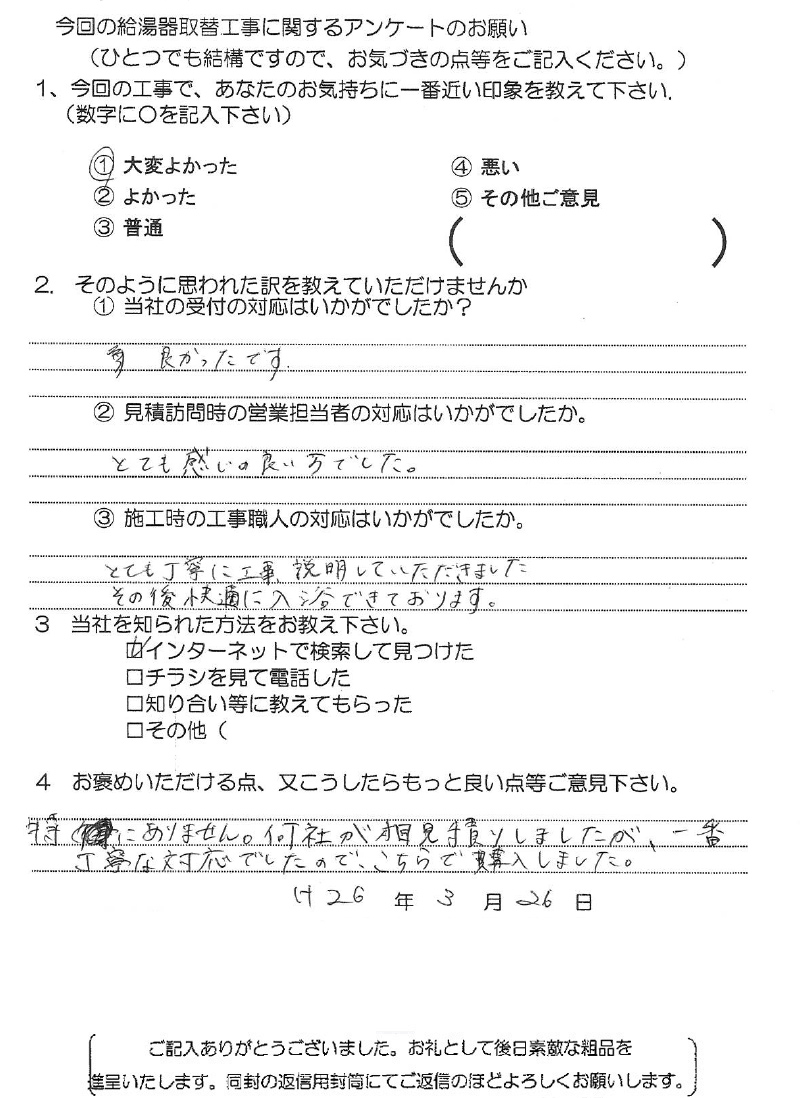 今回の給湯器取替工事に関するアンケートのお願い
（ひとつでも結構ですので、お気づきの点等をご記入ください。）
1、今回の工事で、あなたのお気持ちに一番近い印象を教えて下さい.
（数字に〇を記入下さい）
① 大変よかった ④ 悪い
② よかった ⑤ その他ご意見
③ 普通 （ ）
2. そのように思われた訳を教えていただけませんか
① 当社の受付の対応はいかがでしたか？
良かったです.
② 見積訪問時の営業担当者の対応はいかがでしたか。
とても感じの良い方でした。
③ 施工時の工事職人の対応はいかがでしたか。
とても丁寧に工事、説明していただきました
その後快適に入浴できております。
3 当社を知られた方法をお教え下さい。
☑インターネットで検索して見つけた
□チラシを見て電話した
□知り合い等に教えてもらった
□その他（
4 お褒めいただける点、又こうしたらもっと良い点等ご意見下さい。
特にありません。何社か相見積りしましたが、一番
丁寧な対応でしたので、こちらで購入しました。
H26 年 3 月 26 日
（ご記入ありがとうございました。お礼として後日素敵な粗品を
進呈いたします。同封の返信用封筒にてご返信のほどよろしくお願いします。）